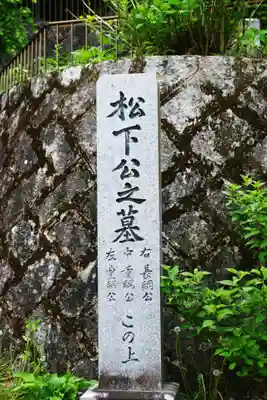 松下公之墓
右 長綱公
中 重綱公
左 重綱公
この上